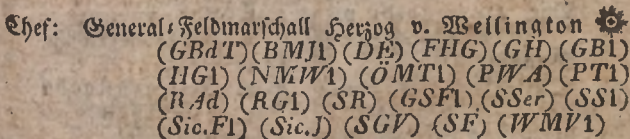 Chef: General-Feldmarschall Herzog v. Wellington
(GBdT) (BMJ1) (DE) (FHG) (GH) (GB1)
(HG1) (NMW1) (ÖMT1) (PWA) (PT1)
(RAd) (RG1) (SR) (GSF1) (SSer) (SS1)
(Sic.F1) (Sic.J) (SGV) (SF) (WMV1)